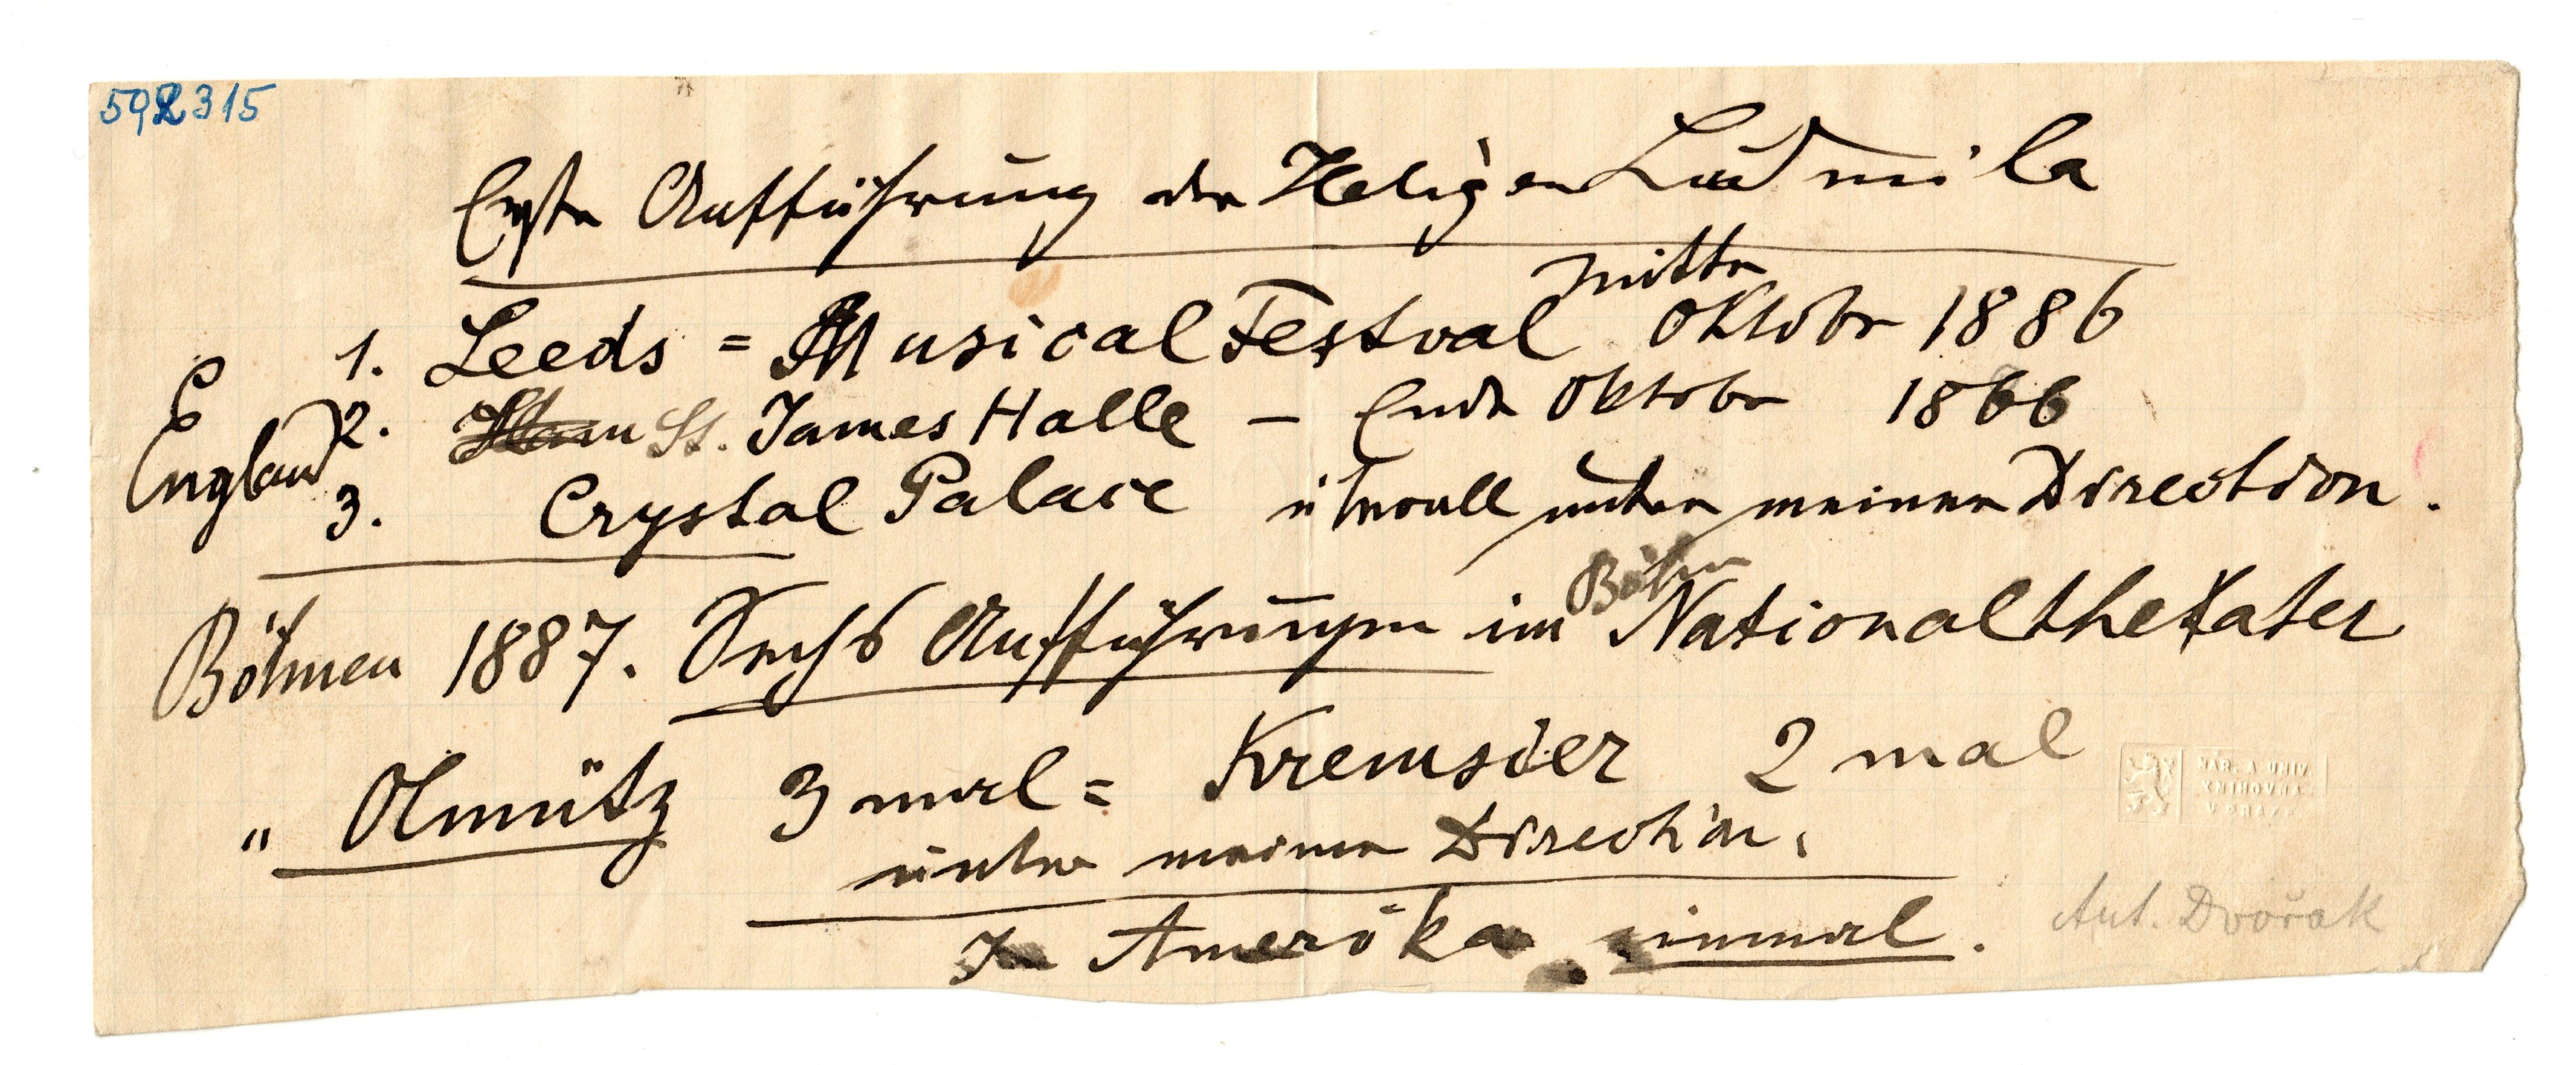 592315
Erste Aufführung der Heligen Ludmila
Mitte
1. Leeds = Musical Festival Oktober 1886
England 2. St. James Halle – Ende Oktober 1866
3. Crystal Palace überall unter meiner Direction.
Böhm
Böhmen 1887. Sechs Aufführungen im Nationaltheater
" Olmütz 3 mal = Kremsier 2 mal
unter meiner Direction.
In Amerika einmal.
Ant. Dvořak
NÁR. A UNIV.
KNIHOVNA
V PRAZE